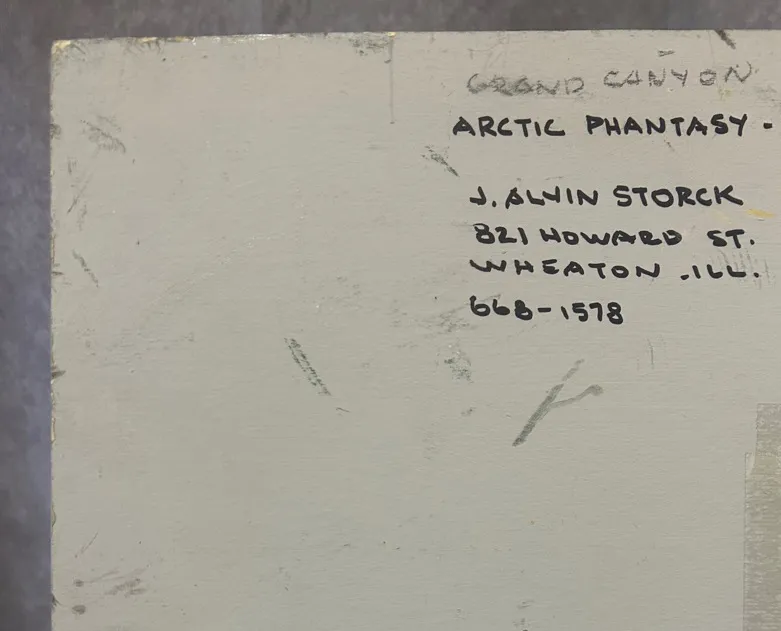 GRAND CANYON
ARCTIC PHANTASY -
J. ALVIN STORCK
821 HOWARD ST.
WHEATON .ILL.
668-1578